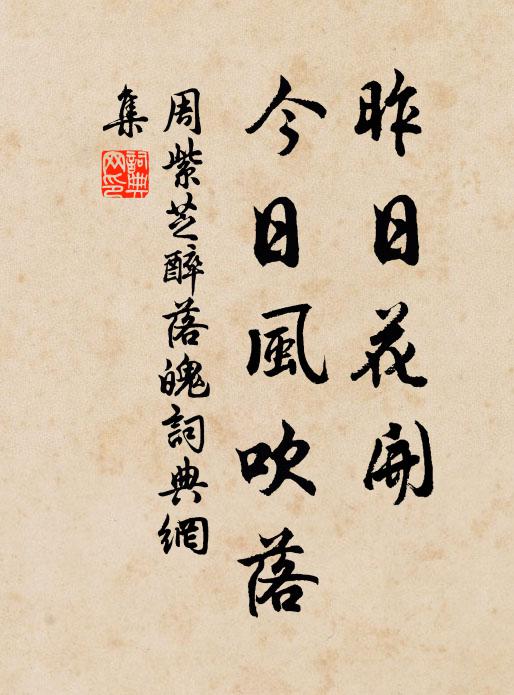 昨日花開
今日風吹落
周紫芝醉落魄詞典網
集
詞典網印